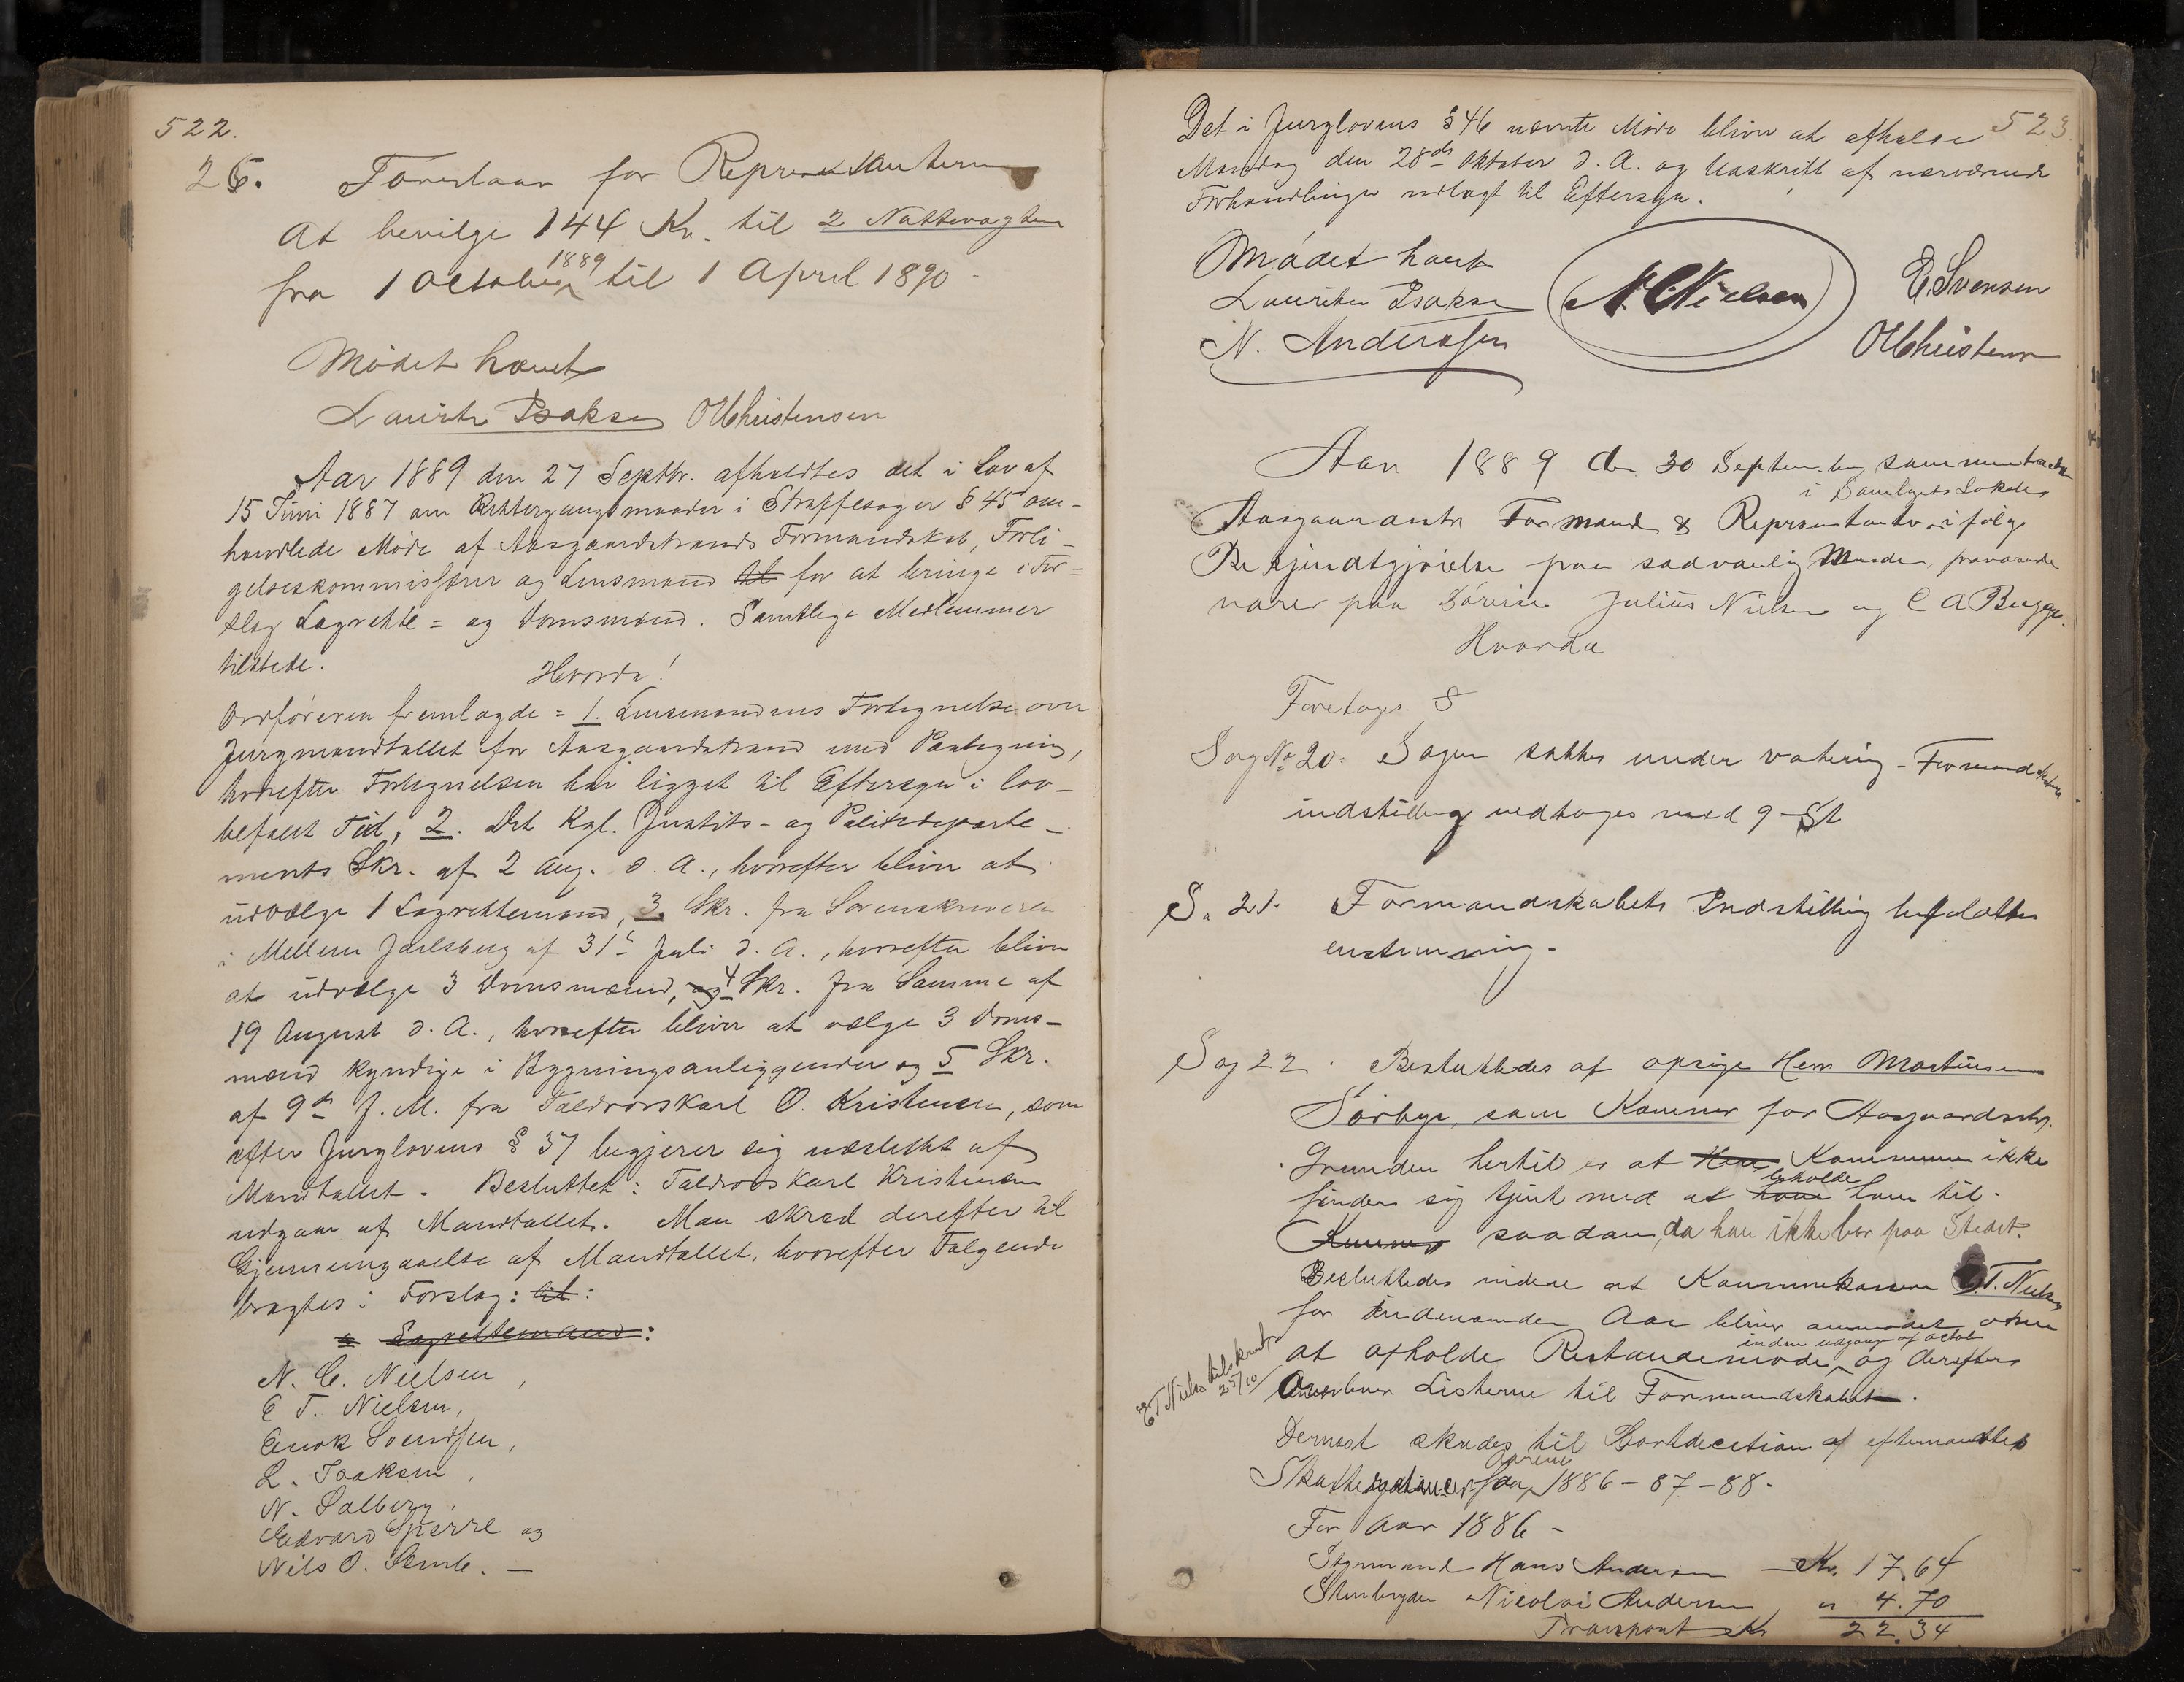 522.
26. Forestaar for Repræsentanterne
At bevilge 144 Kr. til 2 Nattevagter
fra 1 October 1889 til 1 April 1890
Mødet hævet
Lauritz Isaksen OChristensen
Aar 1889 den 27 Septbr. afholdtes det i Lov af
15 Juni 1887 om Rettergangsmaaden i Straffesager § 45 om-
handlede Møde af Aasgaardstrands Formandskab, Forli-
gelseskommissærer og Lensmand til for at bringe i For-
slag Lagrette- og Domsmænd. Samtlige Medlemmer
tilstede.
Hvorda!
Ordføreren fremlagde = 1. Lensmandens Fortegnelse over
Jurymandtallet for Aasgaardstrand med Paategning,
hvorefter Fortegnelsen har ligget til Eftersyn i lov-
befalet Tid, 2. Det Kgl. Justits- og Politideparte-
ments Skr. af 2 Aug. d. A., hvorefter bliver at
udvælge 1 Lagrettemand, 3. Skr. fra Sorenskriveren
i Mellem Jarlsberg af 31te Juli d. A., hvorefter bliver
at udvælge 3 Domsmænd, og 4 Skr. fra Samme af
19 August d. A., hvorefter bliver at vælge 3 Doms-
mænd kyndige i Bygningsanliggender og 5 Skr.
af 9de d. M. fra Toldrorskarl O. Kristensen, som
efter Jurylovens § 37 begjerer sig udslettet af
Mandtallet. Besluttet: Toldrorskarl Kristensen
udgaar af Mandtallet. Man skred derefter til
Gjennemgaaelse af Mandtallet, hvorefter Følgende
bragtes i Forslag: til:
a Lagrettemænd:
N. C. Nielsen,
E T. Nielsen,
Enok Svendsen,
L. Isaksen,
N. Solberg,
Edvard Sperre og
Nils O. Semb. —
523
Det i Jurylovens § 46 nævnte Møde bliver at afholde
Mandag den 28de Oktober d. A. og Udskrift af nærværende
Forhandlinger udlagt til Eftersyn.
Mødet hævet
Lauritz Isaksen N. C Nielsen E. Svensen
N. Anderssen OChristensen
Aar 1889 den 30 September sammentraadte
i Samlagets Lokale
Aasgaardstr Formænd & Repræsentanter ifølge
Bekjendtgjørelse paa sædvanlig Maade, fraværende
varer paa Søreise Julius Nielsen og C A Bugge.
Hvorda
Foretages
Sag No 20. Sagen sattes under votering - Formandskabets
indstilling vedtages med 9 St
S. 21. Formandskabets Indstilling befaldttes
enstemmig.
Sag 22. Besluttedes at opsige Herr Martinsen
Sørbye, som Kæmner for Aasgaardstr.
Grunden hertil er at Herr Kommunen ikke
finder sig tjent med at have beholde ham til
Kæmner saadan, da han ikke bor paa Stedet.
Besluttedes videre at Kommunekasserer E.T. Nielsen
for indeværende Aar bliver anmodet om
at afholde Restancemøde inden udgangen af October og derefter
Overlever Listerne til Formandskabet.
ETNielsen tilskrevet
25/10
Dernæst skredes til Decision af efternævnte
Skatterestancer for Aarene 1886 - 87 - 88.
For Aar 1886 -
Styrmand Hans Andersen Kr. 17.64
Nicolai Andersen " 4.70
Transport Kr 22.34